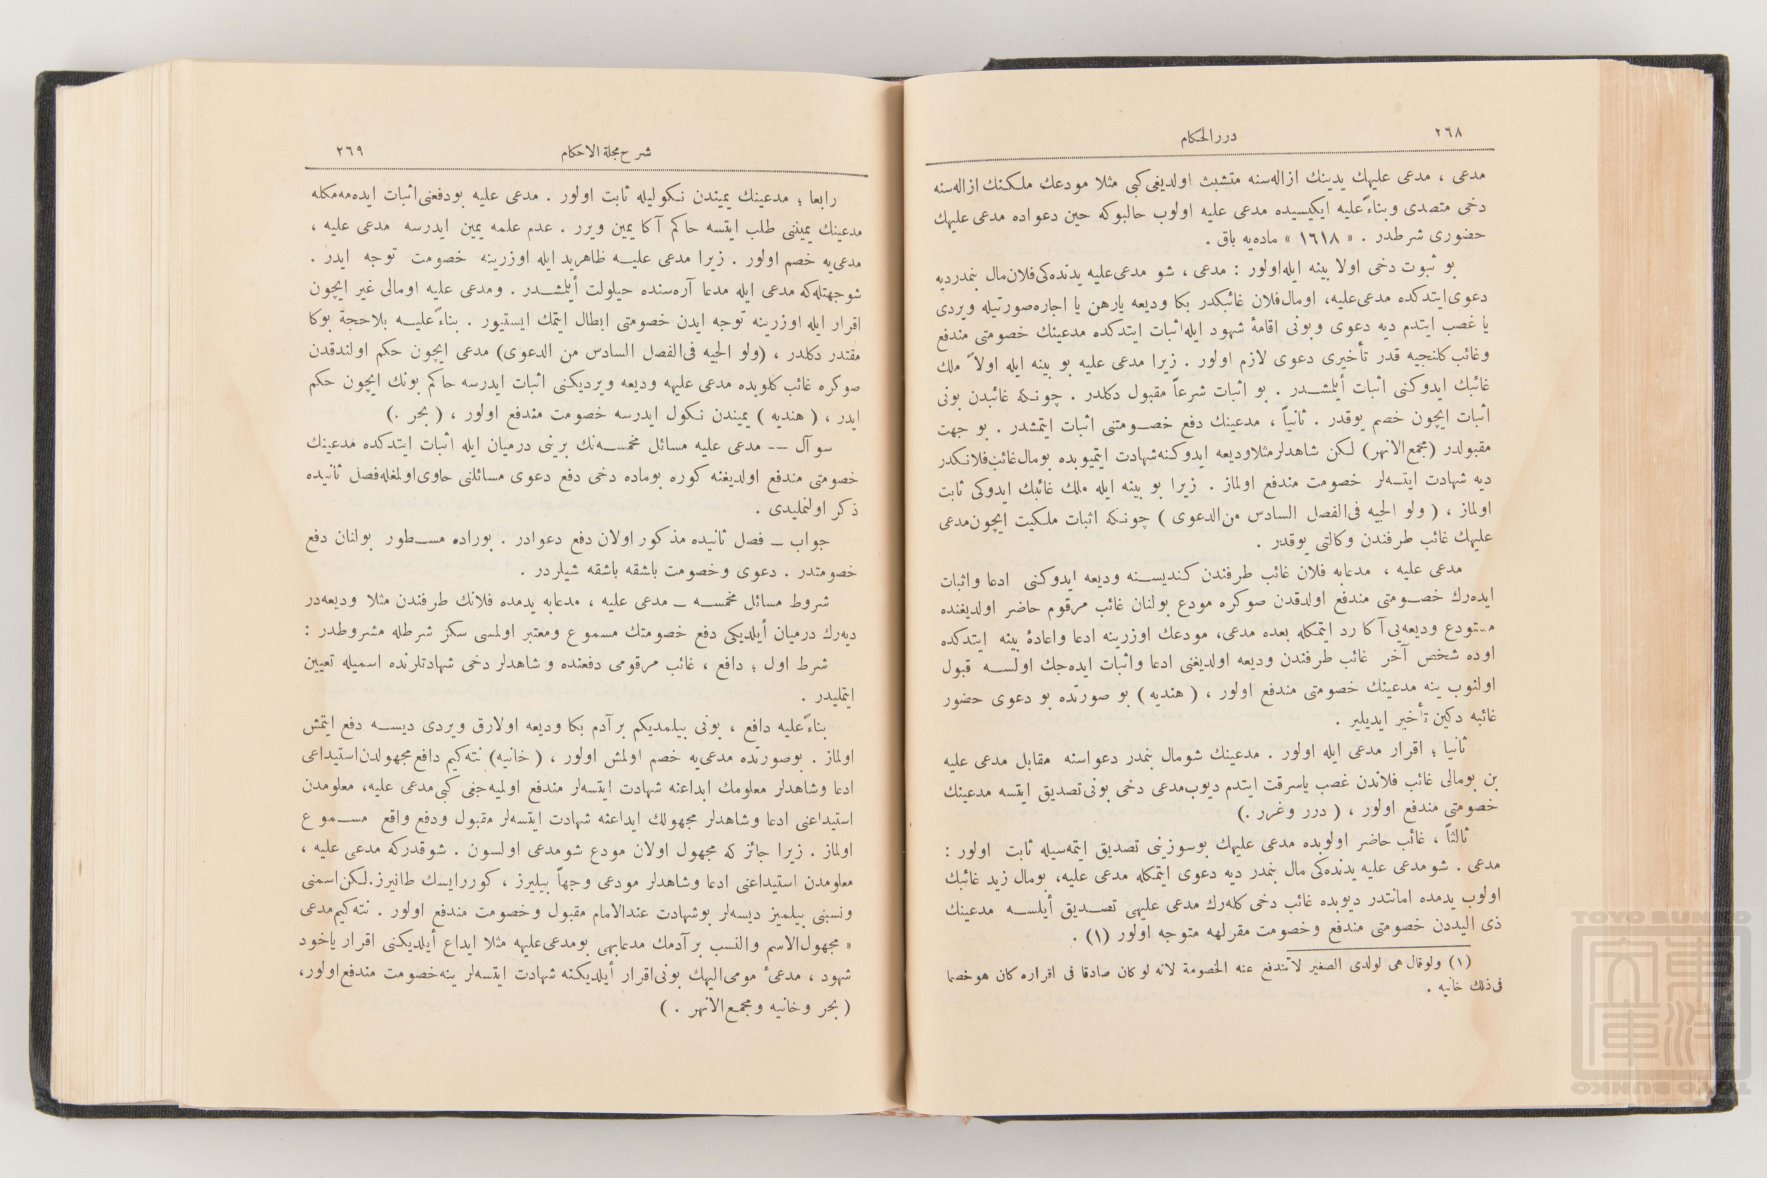 ٢٦٨
درر الحكام
مدعی ، مدعی علیهك یدینك ازاله‌سنه متشبث اولدیغی كبی مثلا مودعك ملكنك ازاله‌سنه
دخی متصدی وبناءً علیه ایكیسیده مدعی علیه اولوب حالبوكه حین دعواده مدعی علیهك
حضوری شرطدر . « ١٦١٨ » ماده‌یه باق .
بو ثبوت دخی اولا بینه ایله اولور : مدعی ، شو مدعی علیه یدنده‌كی فلان مال بنمدر دیه
دعوی ایتدكده مدعی علیه، او مال فلان غائبكدر بكا ودیعه یا رهن یا اجاره صورتیله ویردی
یا غصب ایتدم دیه دعوی وبونی اقامهٔ شهود ایله اثبات ایتدكده مدعینك خصومتی مندفع
وغائب كلنجیه قدر تأخیری دعوی لازم اولور . زیرا مدعی علیه بو بینه ایله اولاً ملك
غائبك ایدوكنی اثبات أیلمشدر . بو اثبات شرعاً مقبول دكلدر . چونكه غائبدن بونی
اثبات ایچون خصم یوقدر . ثانیاً ، مدعینك دفع خصومتنی اثبات ایتمشدر . بو جهت
مقبولدر (مجمع الانهر) لكن شاهدلر مثلا ودیعه ایدوكنه شهادت ایتمیوبده بو مال غائب فلانكدر
دیه شهادت ایتسه‌لر خصومت مندفع اولماز . زیرا بو بینه ایله ملك غائبك ایدوكی ثابت
اولماز ، ( ولو الجیه فی الفصل السادس من الدعوی ) چونكه اثبات ملكیت ایچون مدعی
علیهك غائب طرفندن وكالتی یوقدر .
مدعی علیه ، مدعابه فلان غائب طرفندن كندیسنه ودیعه ایدوكنی ادعا واثبات
ایده‌رك خصومتی مندفع اولدقدن صوكره مودع بولنان غائب مرقوم حاضر اولدیغنده
مستودع ودیعه‌یی آكا رد ایتمكله بعده مدعی، مودعك اوزرینه ادعا واعادهٔ بینه ایتدكده
اوده شخص آخر غائب طرفندن ودیعه اولدیغنی ادعا واثبات ایده‌جك اولسه قبول
اولنوب ینه مدعینك خصومتی مندفع اولور ، ( هندیه ) بو صورتده بو دعوی حضور
غائبه دكین تأخیر ایدیلیر .
ثانیا ؛ اقرار مدعی ایله اولور . مدعینك شو مال بنمدر دعواسنه مقابل مدعی علیه
بن بو مالی غائب فلاندن غصب یا سرقت ایتدم دیوب مدعی دخی بونی تصدیق ایتسه مدعینك
خصومتی مندفع اولور ، ( درر وغرر .)
ثالثاً ، غائب حاضر اولوبده مدعی علیهك بو سوزینی تصدیق ایتمه‌سیله ثابت اولور :
مدعی . شو مدعی علیه یدنده‌كی مال بنمدر دیه دعوی ایتمكله مدعی علیه، بو مال زید غائبك
اولوب یدمده امانتدر دیوبده غائب دخی كله‌رك مدعی علیهی تصدیق أیلسه مدعینك
ذی الیددن خصومتی مندفع وخصومت مقرلهه متوجه اولور (١) .
(١) ولو قال هی لولدی الصغیر لا تندفع عنه الخصومة لانه لو كان صادقا فی اقراره كان هو خصما
فی ذلك خانیه .
شرح مجلة الاحكام
٢٦٩
رابعا ؛ مدعینك یمیندن نكولیله ثابت اولور . مدعی علیه بو دفعنی اثبات ایده‌مه‌مكله
مدعینك یمیننی طلب ایتسه حاكم آكا یمین ویرر . عدم علمه یمین ایدرسه مدعی علیه ،
مدعی‌یه خصم اولور . زیرا مدعی علیه ظاهر ید ایله اوزرینه خصومت توجه ایدر .
شو جهتله‌كه مدعی ایله مدعا آره‌سنده حیلولت أیلمشدر . ومدعی علیه او مالی غیر ایچون
اقرار ایله اوزرینه توجه ایدن خصومتی ابطال ایتمك ایستیور . بناءً علیه بلا حجة بوكا
مقتدر دكلدر ، (ولو الجیه فی الفصل السادس من الدعوی) مدعی ایچون حكم اولندقدن
صوكره غائب كلوبده مدعی علیهه ودیعه ویردیكنی اثبات ایدرسه حاكم بونك ایچون حكم
ایدر ، ( هندیه ) یمیندن نكول ایدرسه خصومت مندفع اولور ، ( بحر .)
سوآل -- مدعی علیه مسائل مخمسه‌نك برینی درمیان ایله اثبات ایتدكده مدعینك
خصومتی مندفع اولدیغنه كوره بو ماده دخی دفع دعوی مسائلنی حاوی اولمغله فصل ثانیده
ذكر اولنملیدی .
جواب ــ فصل ثانیده مذكور اولان دفع دعوادر . بوراده مسطور بولنان دفع
خصومتدر . دعوی وخصومت باشقه باشقه شیلردر .
شروط مسائل مخمسه ــ مدعی علیه ، مدعابه یدمده فلانك طرفندن مثلا ودیعه‌در
دیه‌رك درمیان أیلدیكی دفع خصومتك مسموع ومعتبر اولمسی سكز شرطله مشروطدر :
شرط اول ؛ دافع ، غائب مرقومی دفعنده و شاهدلر دخی شهادتلرنده اسمیله تعیین
ایتملیدر .
بناءً علیه دافع ، بونی بیلمدیكم بر آدم بكا ودیعه اولارق ویردی دیسه دفع ایتمش
اولماز . بو صورتده مدعی‌یه خصم اولمش اولور ، ( خانیه) نته‌كیم دافع مجهولدن استیداعی
ادعا وشاهدلر معلومك ایداعنه شهادت ایتسه‌لر مندفع اولمیه‌جغی كبی مدعی علیه، معلومدن
استیداعنی ادعا وشاهدلر مجهولك ایداعنه شهادت ایتسه‌لر مقبول ودفع واقع مسموع
اولماز . زیرا جائز كه مجهول اولان مودع شو مدعی اولسون . شو قدركه مدعی علیه ،
معلومدن استیداعنی ادعا وشاهدلر مودعی وجهاً بیلیرز ، كوررایسك طانیرز.لكن اسمنی
ونسبنی بیلمیز دیسه‌لر بو شهادت عند الامام مقبول وخصومت مندفع اولور . نته‌كیم مدعی
« مجهول الاسم والنسب بر آدمك مدعابهی بو مدعی علیهه مثلا ایداع أیلدیكنی اقرار یاخود
شهود ، مدعیٔ مومی الیهك بونی اقرار أیلدیكنه شهادت ایتسه‌لر ینه خصومت مندفع اولور،
( بحر وخانیه ومجمع الانهر . )
TOYO BUNKO
TOYO BUNKO